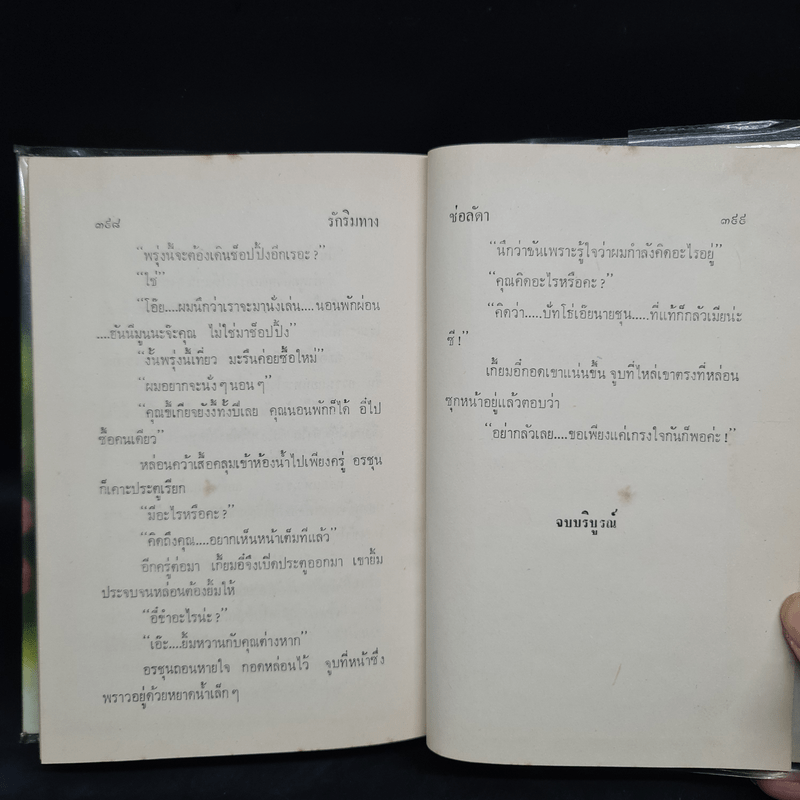 ๓๙๘ รักริมทาง
“พรุ่งนี้จะต้องเดินช็อปปิ้งอีกเรอะ ?”
“ใช่”
“โอ๊ย....ผมนึกว่าเราจะมานั่งเล่น....นอนพักผ่อน
....ฮันนีมูนนะจ๊ะคุณ ไม่ใช่มาช็อปปิ้ง”
“งั้นพรุ่งนี้เที่ยว มะรืนค่อยซื้อใหม่”
“ผมอยากจะนั่ง ๆ นอน ๆ”
“คุณขี้เกียจยังงี้ทั้งปีเลย คุณนอนพักก็ได้ อี๋ไป
ซื้อคนเดียว”
หล่อนคว้าเสื้อคลุมเข้าห้องน้ำไปเพียงครู่ อรชุน
ก็เคาะประตูเรียก
“มีอะไรหรือคะ ?”
“คิดถึงคุณ....อยากเห็นหน้าเต็มทีแล้ว”
อีกครู่ต่อมา เกี้ยมอี๋จึงเปิดประตูออกมา เขายิ้ม
ประจบจนหล่อนต้องยิ้มให้
“อี๋ขำอะไรน่ะ ?”
“เอ๊ะ....ยิ้มหวานกับคุณต่างหาก”
อรชุนถอนหายใจ กอดหล่อนไว้ จูบที่หน้าซึ่ง
พราวอยู่ด้วยหยาดน้ำเล็ก ๆ
ช่อลัดา ๓๙๙
“นึกว่าขันเพราะรู้ใจว่าผมกำลังคิดอะไรอยู่”
“คุณคิดอะไรหรือคะ ?”
“คิดว่า.....บัทโธ่เอ๊ยนายชุน.....ที่แท้ก็กลัวเมียน่ะ
ซี !”
เกี้ยมอี๋กอดเขาแน่นขึ้น จูบที่ไหล่เขาตรงที่หล่อน
ซุกหน้าอยู่แล้วตอบว่า
“อย่ากลัวเลย....ขอเพียงแค่เกรงใจกันก็พอค่ะ !”
จบบริบูรณ์